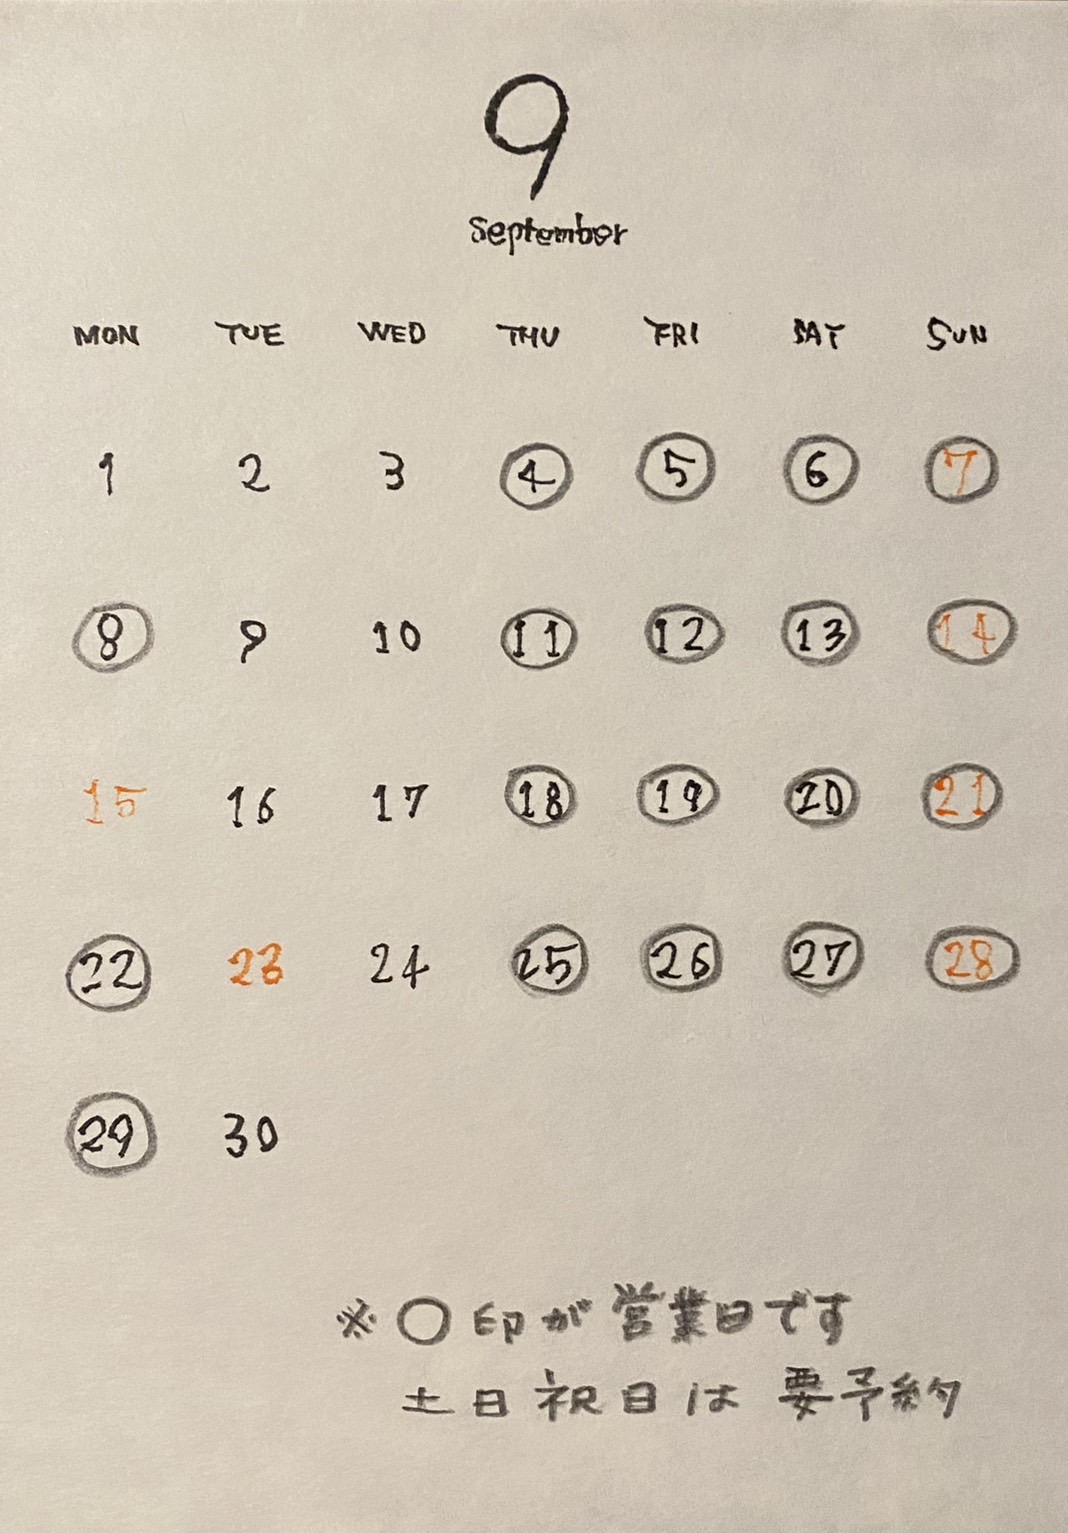 9
September
MON TUE WED THU FRI SAT SUN
1 2 3 4 5 6 7
8 9 10 11 12 13 14
15 16 17 18 19 20 21
22 23 24 25 26 27 28
29 30
※〇印が営業日です
土日祝日は要予約